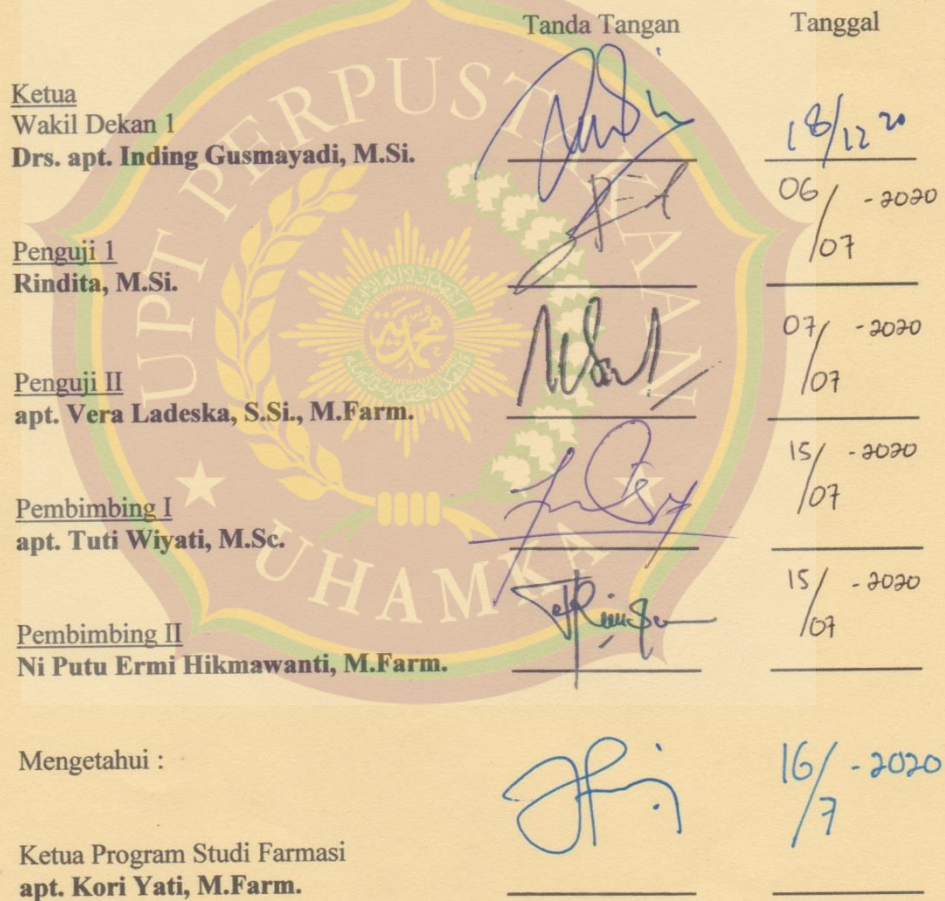 Tanda Tangan Tanggal
Ketua
Wakil Dekan 1
Drs. apt. Inding Gusmayadi, M.Si. 18/12 20
06/07 - 2020
Penguji 1
Rindita, M.Si.
07/07 - 2020
Penguji II
apt. Vera Ladeska, S.Si., M.Farm.
15/07 - 2020
Pembimbing I
apt. Tuti Wiyati, M.Sc.
15/07 - 2020
Pembimbing II
Ni Putu Ermi Hikmawanti, M.Farm.
Mengetahui : 16/7 - 2020
Ketua Program Studi Farmasi
apt. Kori Yati, M.Farm.
UPT PERPUSTAKAAN
UHAMKA